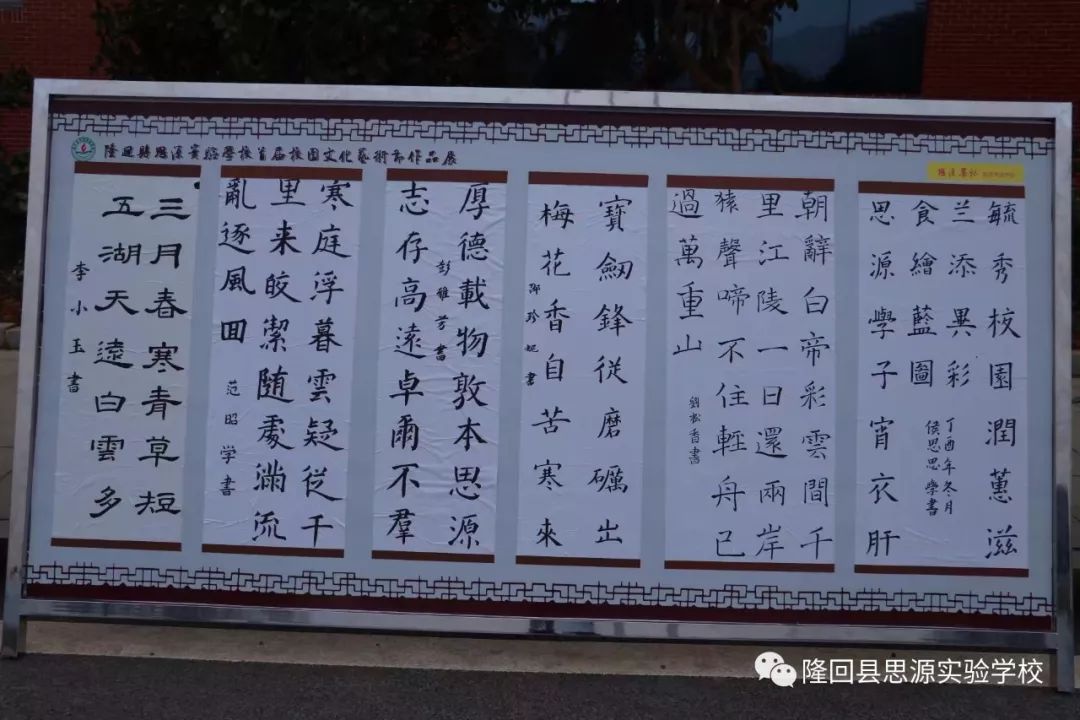 隆迴縣思源實驗學校首届校園文化藝術节作品展
毓秀校園潤蕙滋
兰添異彩
思源學子宵衣肝
食繪藍圖
丁酉年冬月
侯思思學書
朝辭白帝彩雲間千
里江陵一日還兩岸
猿聲啼不住輕舟已
過萬重山
劉松香書
寶劒鋒從磨礪出
梅花香自苦寒來
珍妮書
厚德載物敦本思源
志存高遠卓爾不羣
彭雅芳書
寒庭浮暮雲疑從千
里来皎潔随處滿流
亂逐風回
范昭学書
三月春寒青草短
五湖天遠白雲多
李小玉書
隆回县思源实验学校